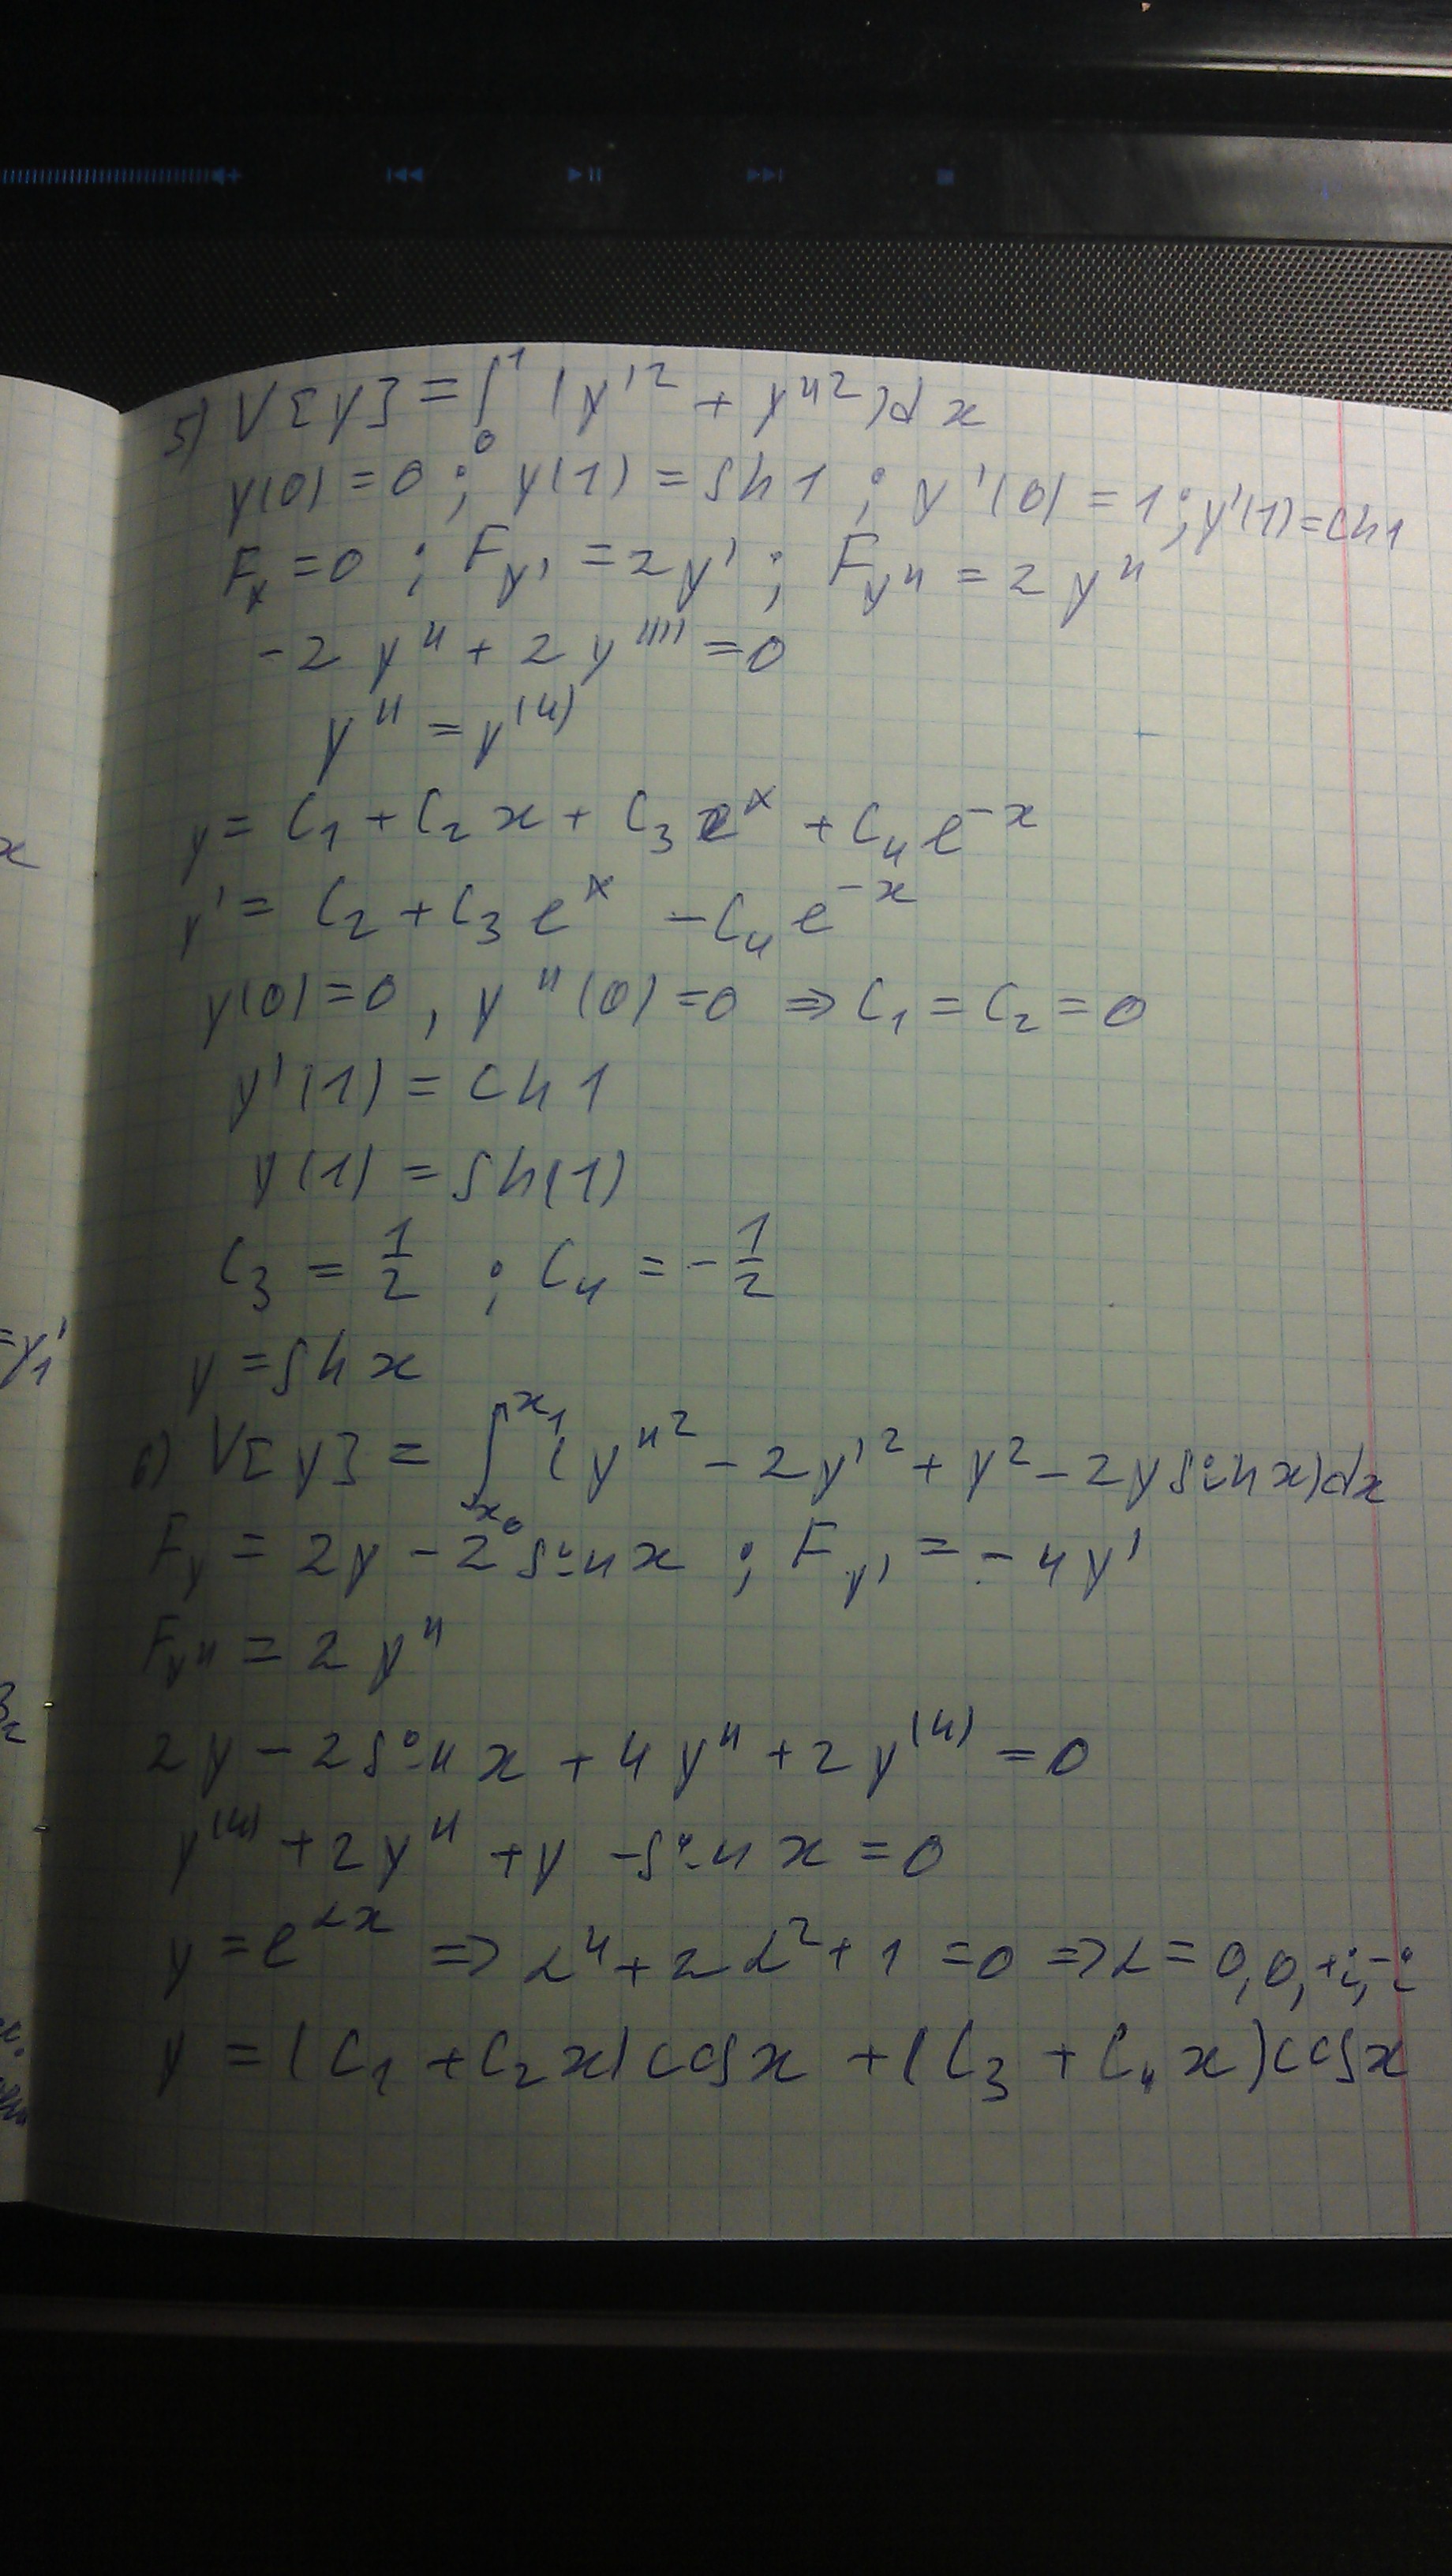 5) V[y] = ∫₀¹ (y'² + y''²)dx
y(0) = 0 ; y(1) = sh1 ; y'(0) = 1 ; y'(1) = ch1
Fₓ = 0 ; F_y' = 2y' ; F_y'' = 2y''
-2y'' + 2y'''' = 0
y'' = y⁽⁴⁾
y = C₁ + C₂x + C₃eˣ + C₄e⁻ˣ
y' = C₂ + C₃eˣ - C₄e⁻ˣ
y(0) = 0 , y''(0) = 0 ⇒ C₁ = C₂ = 0
y'(1) = ch1
y(1) = sh(1)
C₃ = 1/2 ; C₄ = -1/2
y = shx
6) V[y] = ∫_{x₀}^{x₁} (y''² - 2y'² + y² - 2y sinx)dx
F_y = 2y - 2sinx ; F_y' = -4y'
F_y'' = 2y''
2y - 2sinx + 4y'' + 2y⁽⁴⁾ = 0
y⁽⁴⁾ + 2y'' + y - sinx = 0
y = e^{αx} ⇒ α⁴ + 2α² + 1 = 0 ⇒ α = 0, 0, +i, -i
y = (C₁ + C₂x)cosx + (C₃ + C₄x)cosx
x
=y₁'